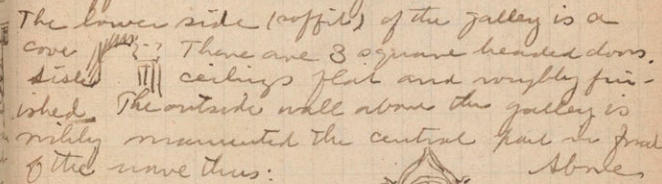 The lower side (soffit) of the galley is a
cove There are 3 square headed doors.
ceilings flat and roughly fin-
ished. The outside wall above the galley is
the central part in front
of the nave thus: Above